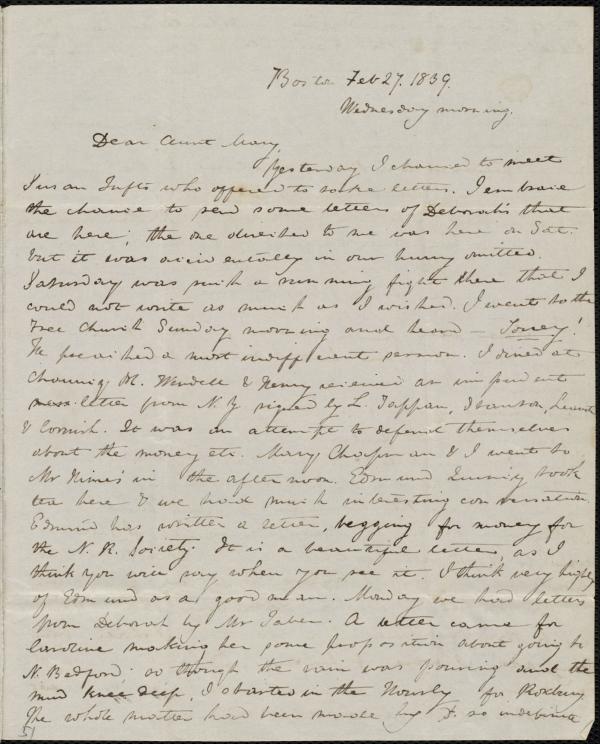 Boston Feb 27. 1839.
Wednesday morning.
Dear Aunt Mary,
Yesterday I chanced to meet
Susan Tufts who offered to take letters. I embrace
the chance to send some letters of Deborah's that
are here; the one directed to me was here on Sat.
but it was accidentally in our hurry omitted.
Saturday was such a running fight there that I
could not write as much as I wished. I went to the
Free Church Sunday morning and heard — Torrey!
He preached a most indifferent sermon. I dined at
Chauncy Pl. Wendell & Henry received an impudent
letter from N. Y. signed by L Tappan, Stanton, Leavitt
& Cornish. It was an attempt to defend themselves
about the money etc. Mary Chapman & I went to
Mr Himes' in the afternoon. Edmund Quincy took
tea here & we had much interesting conversation.
Edmund has written a letter, begging for money for
the N. R. Society. It is a beautiful letter, as I
think you will say when you see it. I think very highly
of Edmund as a good man. Monday we had letters
from Deborah by Mr Taber. A letter came for
Caroline making her some proposition about going to
N. Bedford; so though the rain was pouring and the
mud knee deep, I started in the Hourly for Roxbury
The whole matter had been made by D. so indefinite
51